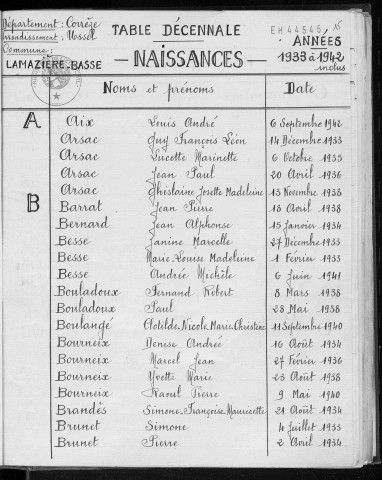 Département: Corrèze
Arrondissement: Ussel
Commune:
LAMAZIÈRE-BASSE
TABLE DÉCENNALE
— NAISSANCES —
EH 44545
ANNÉES
1933 à 1942
inclus
Noms et prénoms Date
A Aix Louis André 6 Septembre 1942
Arsac Guy François Léon 14 Décembre 1933
Arsac Lucette Marinette 6 Octobre 1935
Arsac Jean Paul 20 Avril 1936
Arsac Ghislaine Josette Madeleine 13 Novembre 1938
B Barrat Jean Pierre 18 Avril 1938
Bernard Jean Alphonse 15 Janvier 1934
Besse Janine Marcelle 27 Décembre 1933
Besse Marie-Louise Madeleine 1 Février 1933
Besse Andrée Michèle 6 Juin 1941
Bouladoux Fernand Robert 8 Mars 1938
Bouladoux Paul 28 Mai 1938
Boulangé Clotilde-Nicole-Marie-Christine 11 Septembre 1940
Bourneix Denise Andrée 16 Août 1934
Bourneix Marcel Jean 27 Février 1936
Bourneix Yvette Marie 23 Août 1938
Bourneix Raoul Pierre 9 Mai 1940
Brandès Simone-Françoise-Mauricette 21 Août 1934
Brunet Simone 4 Juillet 1933
Brunet Pierre 2 Avril 1934